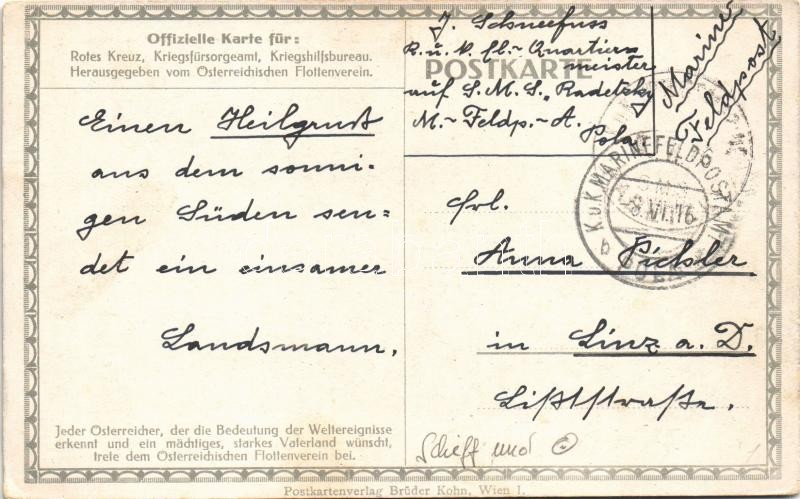 Offizielle Karte für:
Rotes Kreuz, Kriegsfürsorgeamt, Kriegshilfsbureau.
Herausgegeben vom Österreichischen Flottenverein.
Einen Heilgruß
aus dem sonni-
gen Süden sen-
det ein einsamer
Landsmann.
Jeder Österreicher, der die Bedeutung der Weltereignisse
erkennt und ein mächtiges, starkes Vaterland wünscht,
trete dem Österreichischen Flottenverein bei.
J. Schneefuss
K. u. K. fl.-Quartier
meister
POSTKARTE
auf S.M.S. "Radetzky
M.-Feldp.-A.
Pola
Marine
Feldpost
K.u.K. MARINEFELDPOSTAMT
8.VI.16
b POLA
Frl.
Anna Pichler
in Linz a. D.
Schiff und
Postkartenverlag Brüder Kohn, Wien I.